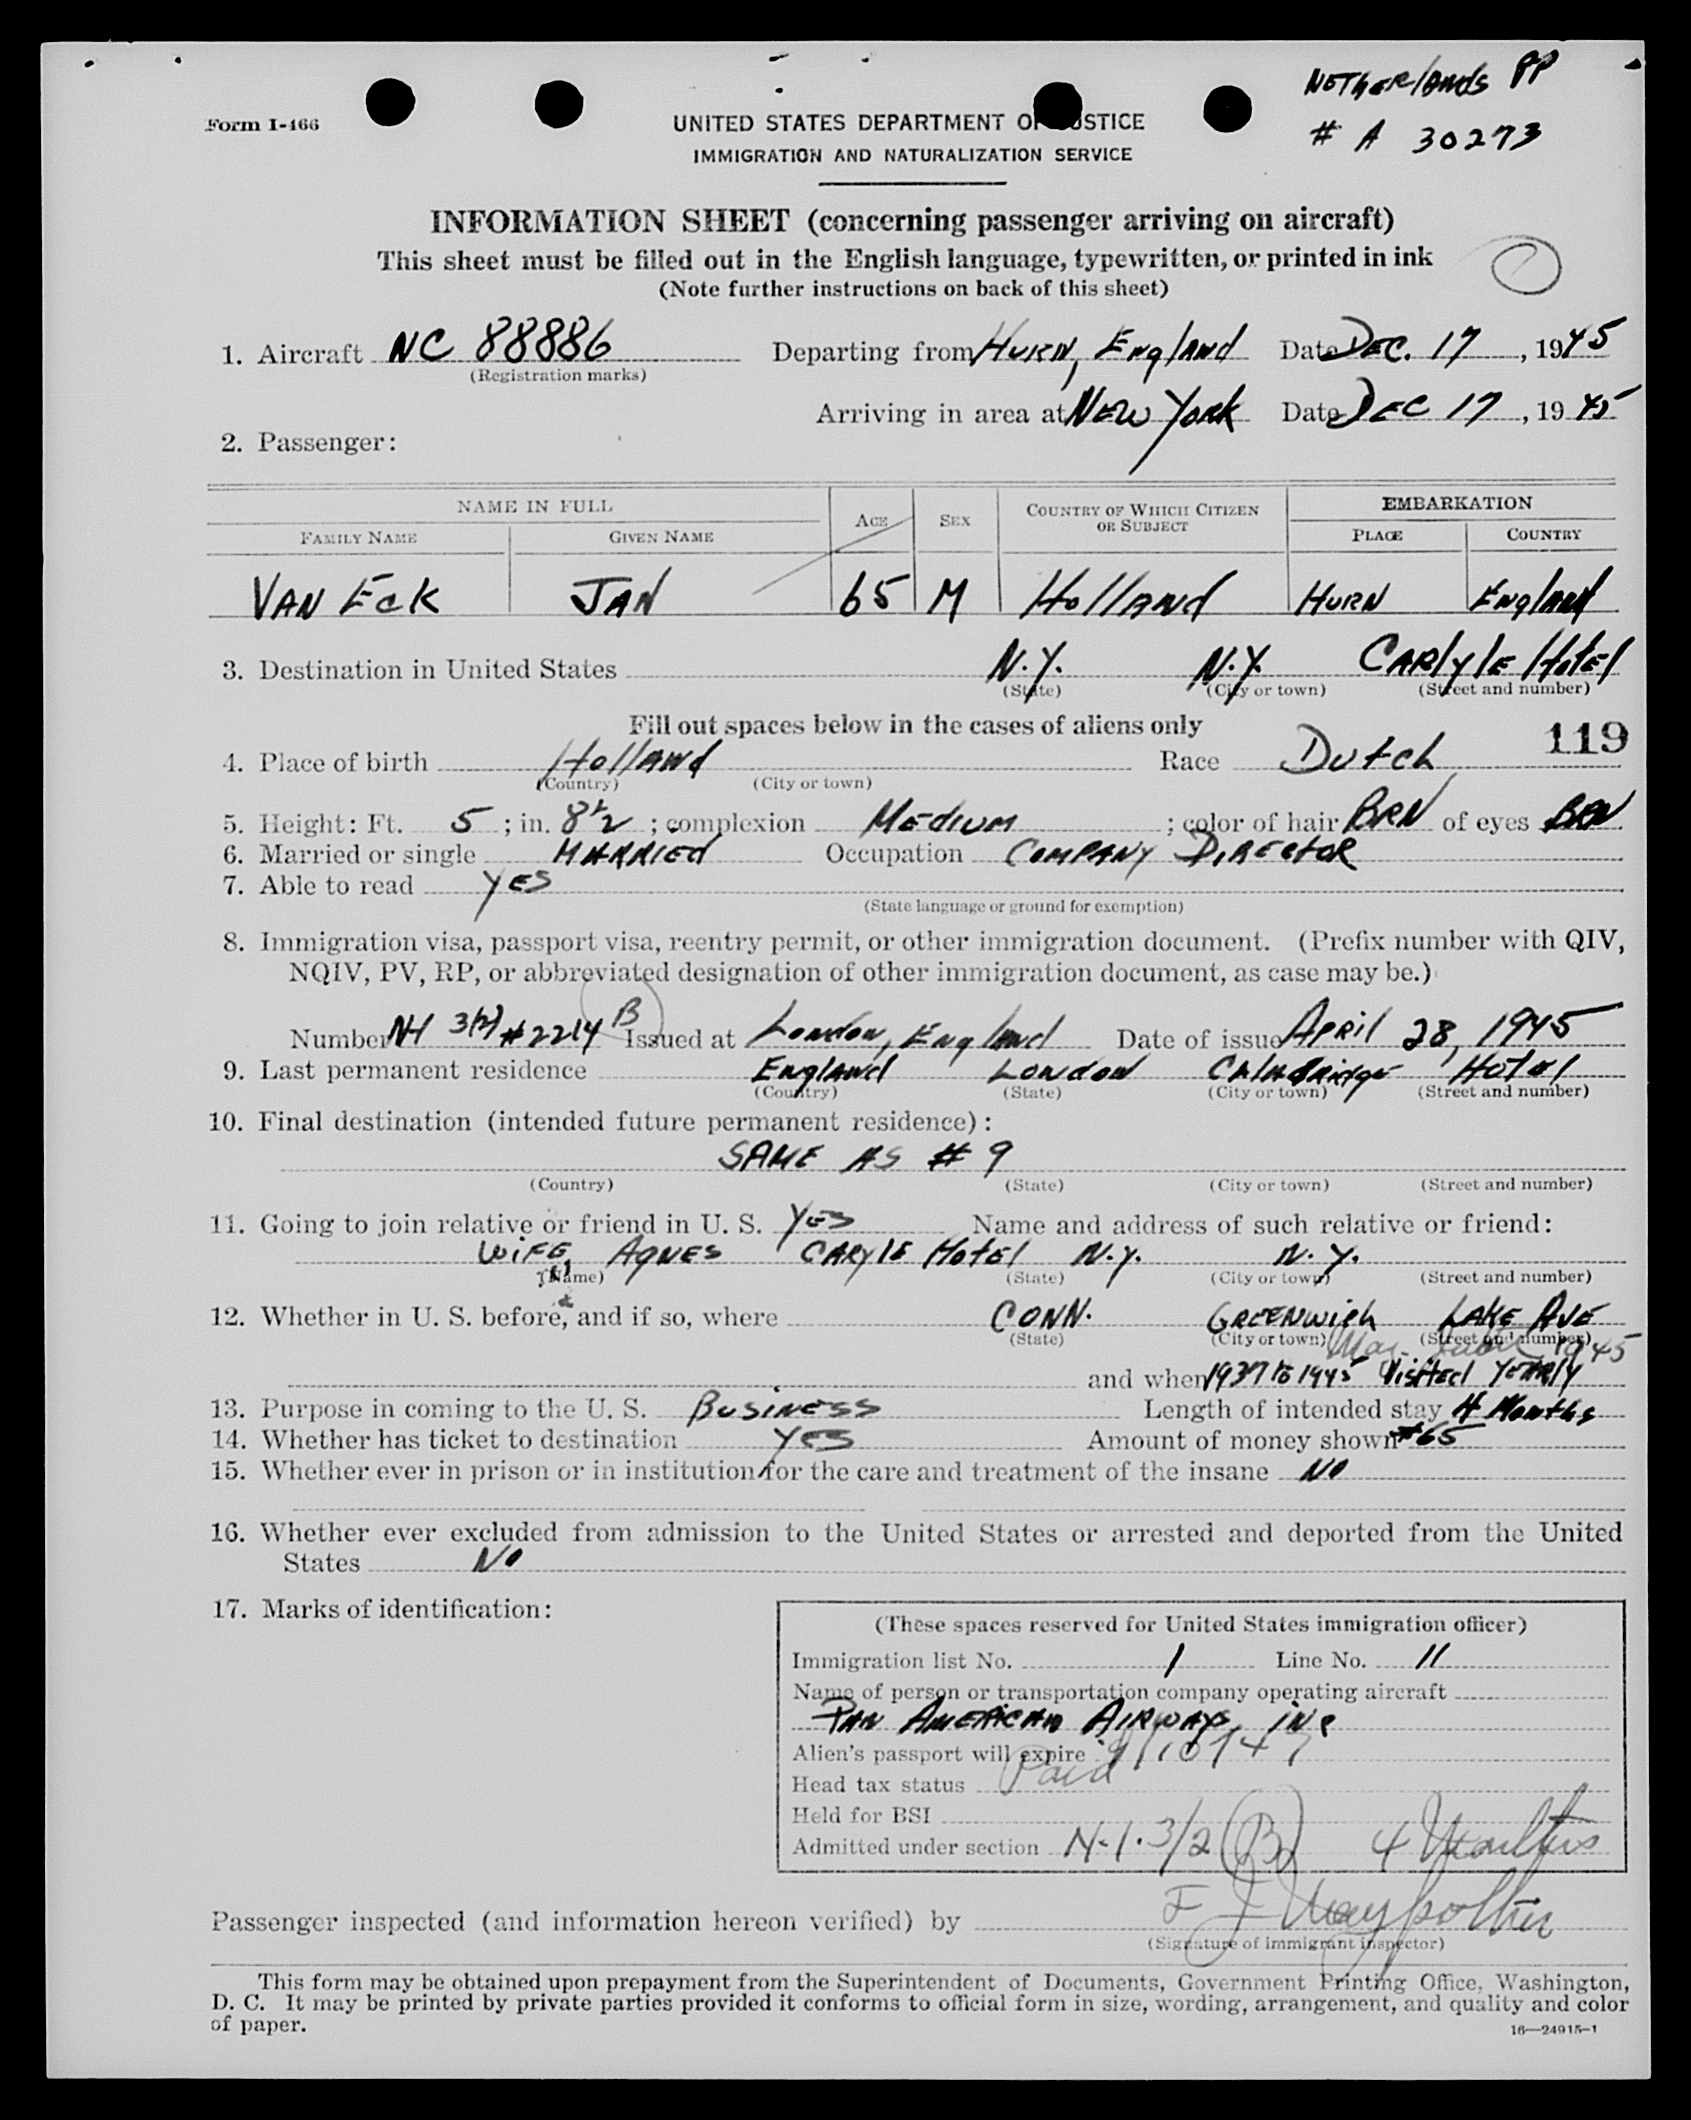 NETHERLANDS PP
# A 30273
Form I-466
UNITED STATES DEPARTMENT OF JUSTICE
IMMIGRATION AND NATURALIZATION SERVICE
INFORMATION SHEET (concerning passenger arriving on aircraft)
This sheet must be filled out in the English language, typewritten, or printed in ink
(Note further instructions on back of this sheet)
1. Aircraft NC 88886 Departing from HURN, England Date DEC. 17, 1945
(Registration marks)
Arriving in area at NEW YORK Date DEC 17, 1945
2. Passenger:
NAME IN FULL AGE SEX COUNTRY OF WHICH CITIZEN OR SUBJECT EMBARKATION
FAMILY NAME GIVEN NAME PLACE COUNTRY
VAN ECK JAN 65 M HollAND HURN ENglAND
3. Destination in United States N.Y. N.Y. CARlylE HotEl
(State) (City or town) (Street and number)
Fill out spaces below in the cases of aliens only
119
4. Place of birth HollAND Race Dutch
(Country) (City or town)
5. Height: Ft. 5; in. 8½; complexion MEdIUM; color of hair BRN of eyes BRN
6. Married or single MARRIEd Occupation COMPANY DIRECTOR
7. Able to read YES
(State language or ground for exemption)
8. Immigration visa, passport visa, reentry permit, or other immigration document. (Prefix number with QIV,
NQIV, PV, RP, or abbreviated designation of other immigration document, as case may be.)
Number N-1 3(2) #2214 B Issued at London, England Date of issue APRil 28, 1945
9. Last permanent residence EnglAnd London Hotel
(Country) (State) (City or town) (Street and number)
10. Final destination (intended future permanent residence):
SAME AS # 9
(Country) (State) (City or town) (Street and number)
11. Going to join relative or friend in U. S. YES Name and address of such relative or friend:
WIFE AGNES CARYlE HotEl N.Y. N.Y.
(Name) (State) (City or town) (Street and number)
12. Whether in U. S. before, and if so, where CONN. GREENWICH LAKE AVE
(State) (City or town) (Street and number)
1945
and when 1937 to 1945 Visited YEARLY
13. Purpose in coming to the U. S. BUSINESS Length of intended stay 4 Months
14. Whether has ticket to destination YES Amount of money shown $65
15. Whether ever in prison or in institution for the care and treatment of the insane NO
16. Whether ever excluded from admission to the United States or arrested and deported from the United
States NO
17. Marks of identification:
(These spaces reserved for United States immigration officer)
Immigration list No. 1 Line No. 11
Name of person or transportation company operating aircraft
PAN AMERICAN AIRWAYS, INC
Alien's passport will expire 9/10/47
Head tax status Paid
Held for BSI
Admitted under section N-1. 3/2 (B) 4 Months
Passenger inspected (and information hereon verified) by
(Signature of immigrant inspector)
This form may be obtained upon prepayment from the Superintendent of Documents, Government Printing Office, Washington,
D. C. It may be printed by private parties provided it conforms to official form in size, wording, arrangement, and quality and color
of paper.
16—24915-1